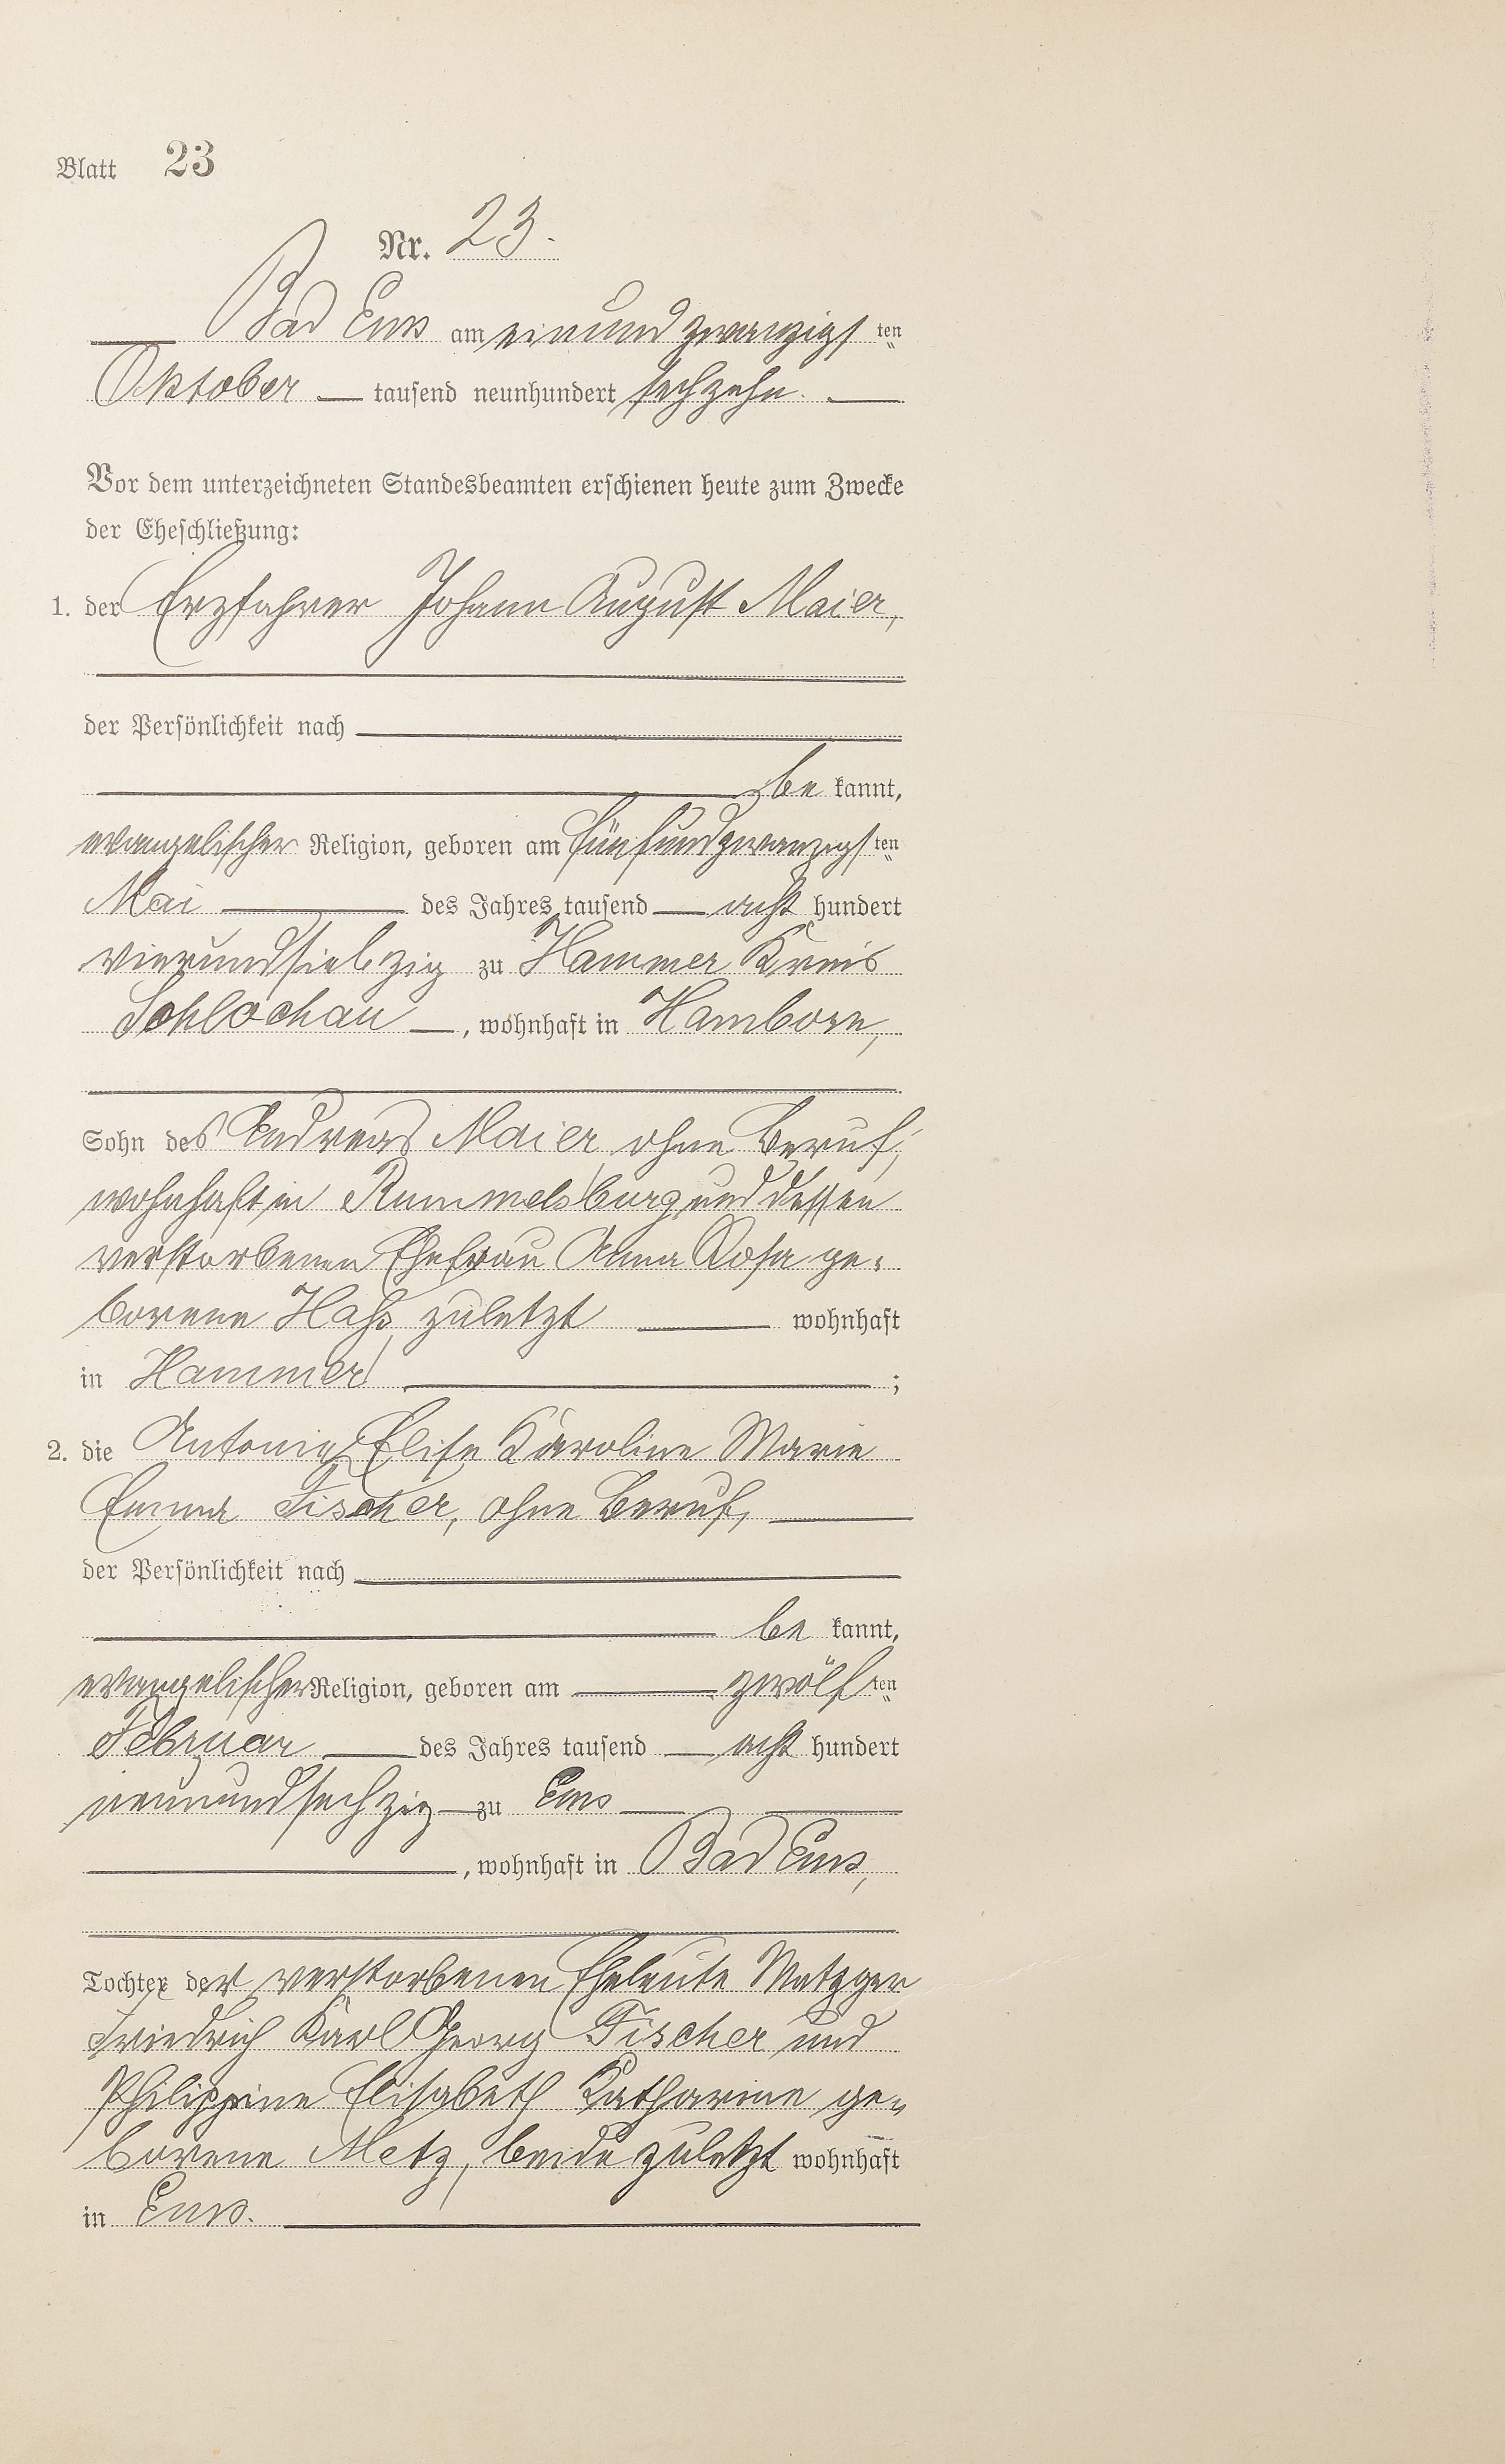 Blatt 23
Nr. 23.
Bad Ems am einundzwanzigsten
Oktober tausend neunhundert sechzehn.
Vor dem unterzeichneten Standesbeamten erschienen heute zum Zwecke
der Eheschließung:
1. der Erzfahrer Johann August Maier,
der Persönlichkeit nach
be kannt,
evangelischer Religion, geboren am fünfundzwanzigsten
Mai des Jahres tausend acht hundert
vierundsiebzig zu Hammer Kreis
Schlochau, wohnhaft in Hamborn,
Sohn des Andreas Maier ohne Beruf,
wohnhaft in Rummelsburg und dessen
verstorbenen Ehefrau Anna Rosa ge-
borene Haß, zuletzt wohnhaft
in Hammer ;
2. die Antonie Elise Karoline Marie
Emma Fischer, ohne Beruf,
der Persönlichkeit nach
be kannt,
evangelischer Religion, geboren am zwölften
Februar des Jahres tausend acht hundert
neunundsechzig zu Ems
, wohnhaft in Bad Ems,
Tochter der verstorbenen Eheleute Metzger
Friedrich Karl Georg Fischer und
Philippine Elisabeth Katharine ge-
borene Metz, beide zuletzt wohnhaft
in Ems.